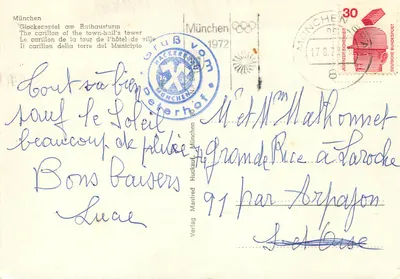 München
Glockenspiel am Rathausturm
The carillon of the town-hall's tower
Le carillon de la tour de l'hôtel de ville
Il carillon della torre del Municipio
München
1972
MÜNCHEN
30
Gruß vom
HACKERBRÄU
MÜNCHEN
Peterhof
Tout va bien
sauf le Soleil,
beaucoup de pluie
Bons baisers
Lucie
Verlag Manfred München
Mr et Mme Mathonnet
74 grande Rue à Laroche
91 par Arpajon
S et Oise